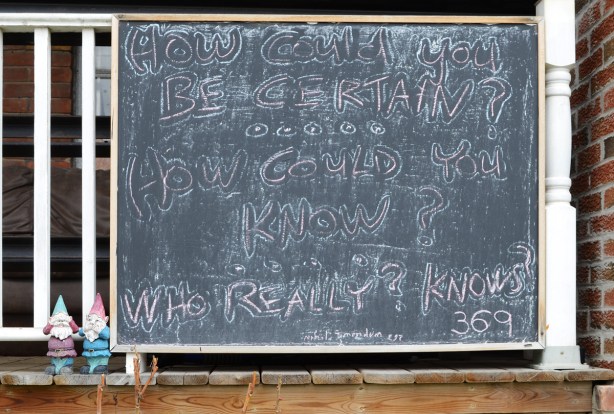 HOW COULd you
BE CERTAIN?
HOW COULD YOU
KNOW?
WHO REALLY? KNOWS?
369